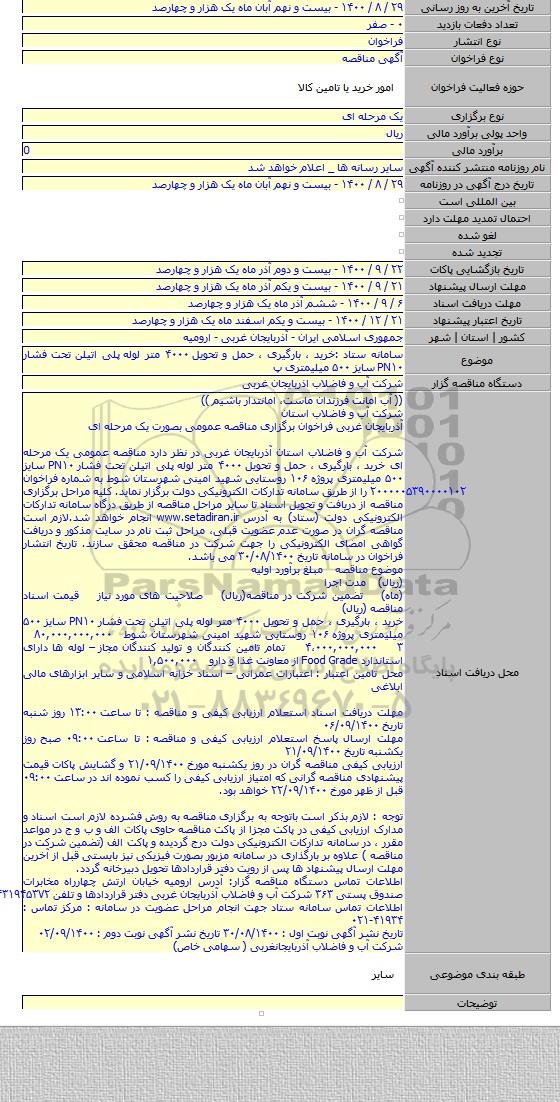 تاریخ آخرین به روز رسانی ۲۹ / ۸ / ۱۴۰۰ - بیست و نهم آبان ماه یک هزار و چهارصد
تعداد دفعات بازدید ۰ - صفر
نوع انتشار فراخوان
نوع فراخوان آگهی مناقصه
حوزه فعالیت فراخوان امور خرید با تامین کالا
نوع برگزاری یک مرحله ای
واحد پولی برآورد مالی ریال
برآورد مالی 0
نام روزنامه منتشر کننده آگهی سایر رسانه ها _ اعلام خواهد شد
تاریخ درج آگهی در روزنامه ۲۹ / ۸ / ۱۴۰۰ - بیست و نهم آبان ماه یک هزار و چهارصد
بین المللی است
احتمال تمدید مهلت دارد
لغو شده
تجدید شده
تاریخ بازگشایی پاکات ۲۲ / ۹ / ۱۴۰۰ - بیست و دوم آذر ماه یک هزار و چهارصد
مهلت ارسال پیشنهاد ۲۱ / ۹ / ۱۴۰۰ - بیست و یکم آذر ماه یک هزار و چهارصد
مهلت دریافت اسناد ۶ / ۹ / ۱۴۰۰ - ششم آذر ماه یک هزار و چهارصد
تاریخ اعتبار پیشنهاد ۲۱ / ۱۲ / ۱۴۰۰ - بیست و یکم اسفند ماه یک هزار و چهارصد
کشور | استان | شهر جمهوری اسلامی ایران - آذربایجان غربی - ارومیه
موضوع سامانه ستاد :خرید ، بارگیری ، حمل و تحویل ۴۰۰۰ متر لوله پلی اتیلن تحت فشار
PN۱۰ سایز ۵۰۰ میلیمتری پ
دستگاه مناقصه گزار شرکت آب و فاضلاب اذربایجان غربی
محل دریافت اسناد
(( آب امانت فرزندان ماست، امانتدار باشیم ))
شرکت آب و فاضلاب استان
آذربایجان غربی فراخوان برگزاری مناقصه عمومی بصورت یک مرحله ای
شرکت آب و فاضلاب استان آذربایجان غربی در نظر دارد مناقصه عمومی یک مرحله
ای خرید ، بارگیری ، حمل و تحویل ۴۰۰۰ متر لوله پلی اتیلن تحت فشار PN۱۰ سایز
۵۰۰ میلیمتری پروژه ۱۰۶ روستایی شهید امینی شهرستان شوط به شماره فراخوان
۲۰۰۰۰۰۵۳۹۰۰۰۰۱۰۲ را از طریق سامانه تدارکات الکترونیکی دولت برگزار نماید. کلیه مراحل برگزاری
مناقصه از دریافت و تحویل اسناد تا سایر مراحل مناقصه از طریق درگاه سامانه تدارکات
الکترونیکی دولت (ستاد) به آدرس www.setadiran.ir انجام خواهد شد.لازم است
مناقصه گران در صورت عدم عضویت قبلی، مراحل ثبت نام در سایت مذکور و دریافت
گواهی امضای الکترونیکی را جهت شرکت در مناقصه محقق سازند. تاریخ انتشار
فراخوان در سامانه تاریخ ۳۰/۰۸/۱۴۰۰ می باشد.
موضوع مناقصه مبلغ برآورد اولیه
(ریال) مدت اجرا
(ماه) تضمین شرکت در مناقصه(ریال) صلاحیت های مورد نیاز قیمت اسناد
مناقصه (ریال)
خرید ، بارگیری ، حمل و تحویل ۴۰۰۰ متر لوله پلی اتیلن تحت فشار PN۱۰ سایز ۵۰۰
میلیمتری پروژه ۱۰۶ روستایی شهید امینی شهرستان شوط ۸۰,۰۰۰,۰۰۰,۰۰۰
۳ ۴.۰۰۰,۰۰۰,۰۰۰ تمام تامین کنندگان و تولید کنندگان مجاز – لوله ها دارای
استاندارد Food Grade از معاونت غذا و دارو ۱,۵۰۰,۰۰۰
محل تامین اعتبار : اعتبارات عمرانی – اسناد خزانه اسلامی و سایر ابزارهای مالی
ابلاغی
مهلت دریافت اسناد استعلام ارزیابی کیفی و مناقصه : تا ساعت ۱۳:۰۰ روز شنبه
تاریخ ۰۶/۰۹/۱۴۰۰
مهلت ارسال پاسخ استعلام ارزیابی کیفی و مناقصه : تا ساعت ۰۹:۰۰ صبح روز
یکشنبه تاریخ ۲۱/۰۹/۱۴۰۰
ارزیابی کیفی مناقصه گران در روز یکشنبه مورخ ۲۱/۰۹/۱۴۰۰ و گشایش پاکات قیمت
پیشنهادی مناقصه گرانی که امتیاز ارزیابی کیفی را کسب نموده اند در ساعت ۰۹:۰۰
قبل از ظهر مورخ ۲۲/۰۹/۱۴۰۰ خواهد بود.
توجه : لازم بذکر است باتوجه به برگزاری مناقصه به روش فشرده لازم است اسناد و
مدارک ارزیابی کیفی در پاکت مجزا از پاکت مناقصه حاوی پاکات الف و ب و ج در مواعد
مقرر ، در سامانه تدارکات الکترونیکی دولت درج گردیده و پاکت الف (تضمین شرکت در
مناقصه ) علاوه بر بارگذاری در سامانه مزبور بصورت فیزیکی نیز بایستی قبل از آخرین
مهلت ارسال پیشنهاد ها پس از رویت دفتر قراردادها تحویل دبیرخانه گردد.
اطلاعات تماس دستگاه مناقصه گزار: آدرس ارومیه خیابان ارتش چهارراه مخابرات
صندوق پستی ۳۶۳ شرکت آب و فاضلاب آذربایجان غربی دفتر قراردادها و تلفن
اطلاعات تماس سامانه ستاد جهت انجام مراحل عضویت در سامانه : مرکز تماس :
۰۲۱-۴۱۹۳۴
تاریخ نشر آگهی نوبت اول : ۳۰/۰۸/۱۴۰۰ تاریخ نشر آگهی نوبت دوم : ۰۲/۰۹/۱۴۰۰
شرکت آب و فاضلاب آذربایجانغربی ( سهامی خاص)
طبقه بندی موضوعی سایر
توضیحات
ParsNamadData
۰۲۱-۸۸۳۴۹۶۷۰-۵